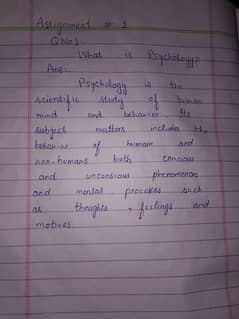 Assignment # 1
Q No 1
What is Psychology?
Ans:.
Psychology is the
scientific study of human
mind and behavior. Its
subject matters includes the
behavior of humans and
non-humans both concious
and unconsious phenomenon,
and mental procckes such
as thoughts , feelings and
motives